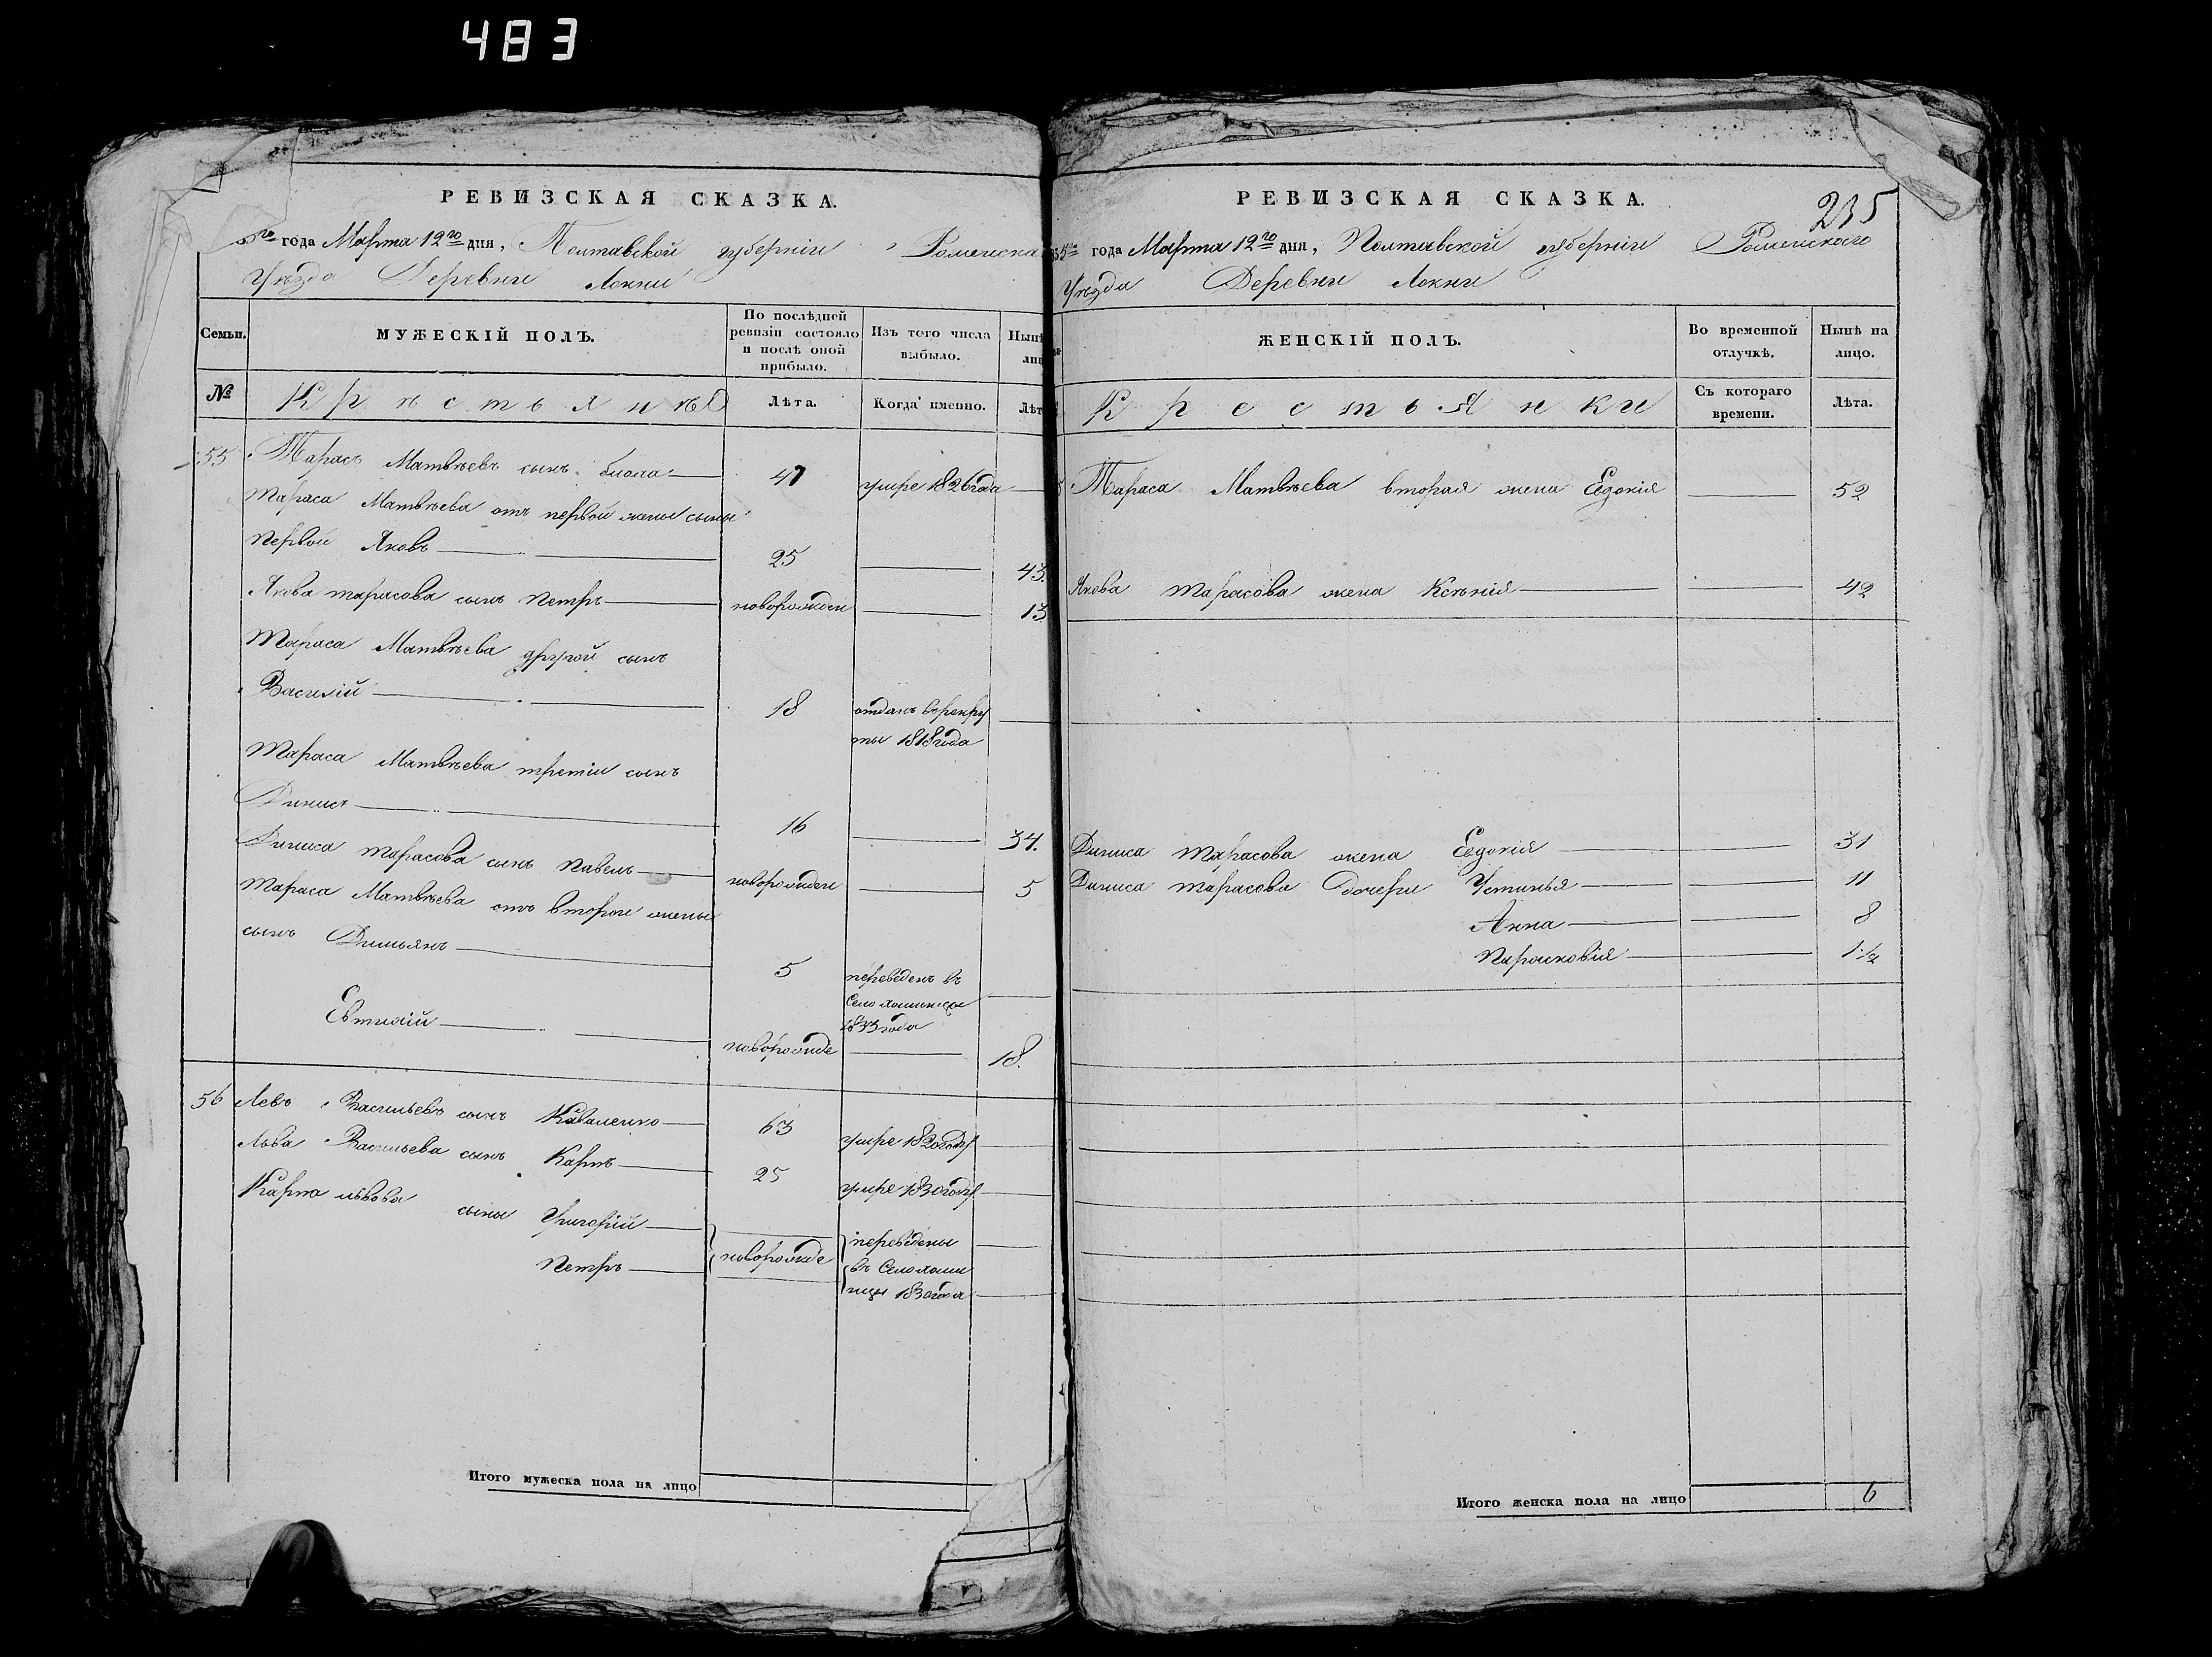 483
РЕВИЗСКАЯ СКАЗКА.
года Марта 12го дня, Полтавской губерніи Роменска
Уѣзда Деревни Локни
Семьи.
МУЖЕСКІЙ ПОЛЪ.
По послѣдней ревизіи состояло и послѣ оной прибыло.
Изъ того числа выбыло.
Нынѣ
лиц
№
Крѣстьянѣ
Лѣта.
Когда именно.
Лѣт
55 Тарасъ Матвѣевъ сынъ 47 умре 1826 года
Тараса Матвѣева отъ первой жены сыны
Первой Яковъ 25 43.
Якова Тарасова сынъ Петръ новорожден 13
Тараса Матвѣева другой сынъ
Василій 18 отданъ врекру
ты 1818 года
Тараса Матвѣева третіи сынъ
Динисъ 16 34.
Диниса Тарасова сынъ Павелъ новорожден 5
Тараса Матвѣева отъ второи жены
сынъ Димьянъ 5 переведенъ въ
Село
1833 года
Евтихій новорожде 18.
56 Левъ Васильевъ сынъ Каваленко 63 умре 1820 году
Льва Васильева сынъ Карпъ 25 умре 1830 году
Карпа Львова сыны Григорій
Петръ новорожде переведены
въ Село
1830 года
Итого мужеска пола на лицо
РЕВИЗСКАЯ СКАЗКА.
235
5го года Марта 12го дня, Полтавской губерніи Роменского
Уѣзда Деревни Локни
ЖЕНСКІЙ ПОЛЪ.
Во временной отлучкѣ.
Нынѣ на лицо.
Крестьянки
Съ котораго времени.
Лѣта.
Тараса Матвѣева вторая жена Евдокія 52
Якова Тарасова жена Ксѣнія 42
Диниса Тарасова жена Евдокія 31
Диниса Тарасова дочери Устинья 11
Анна 8
Парасковія 1 1/2
Итого женска пола на лицо 6